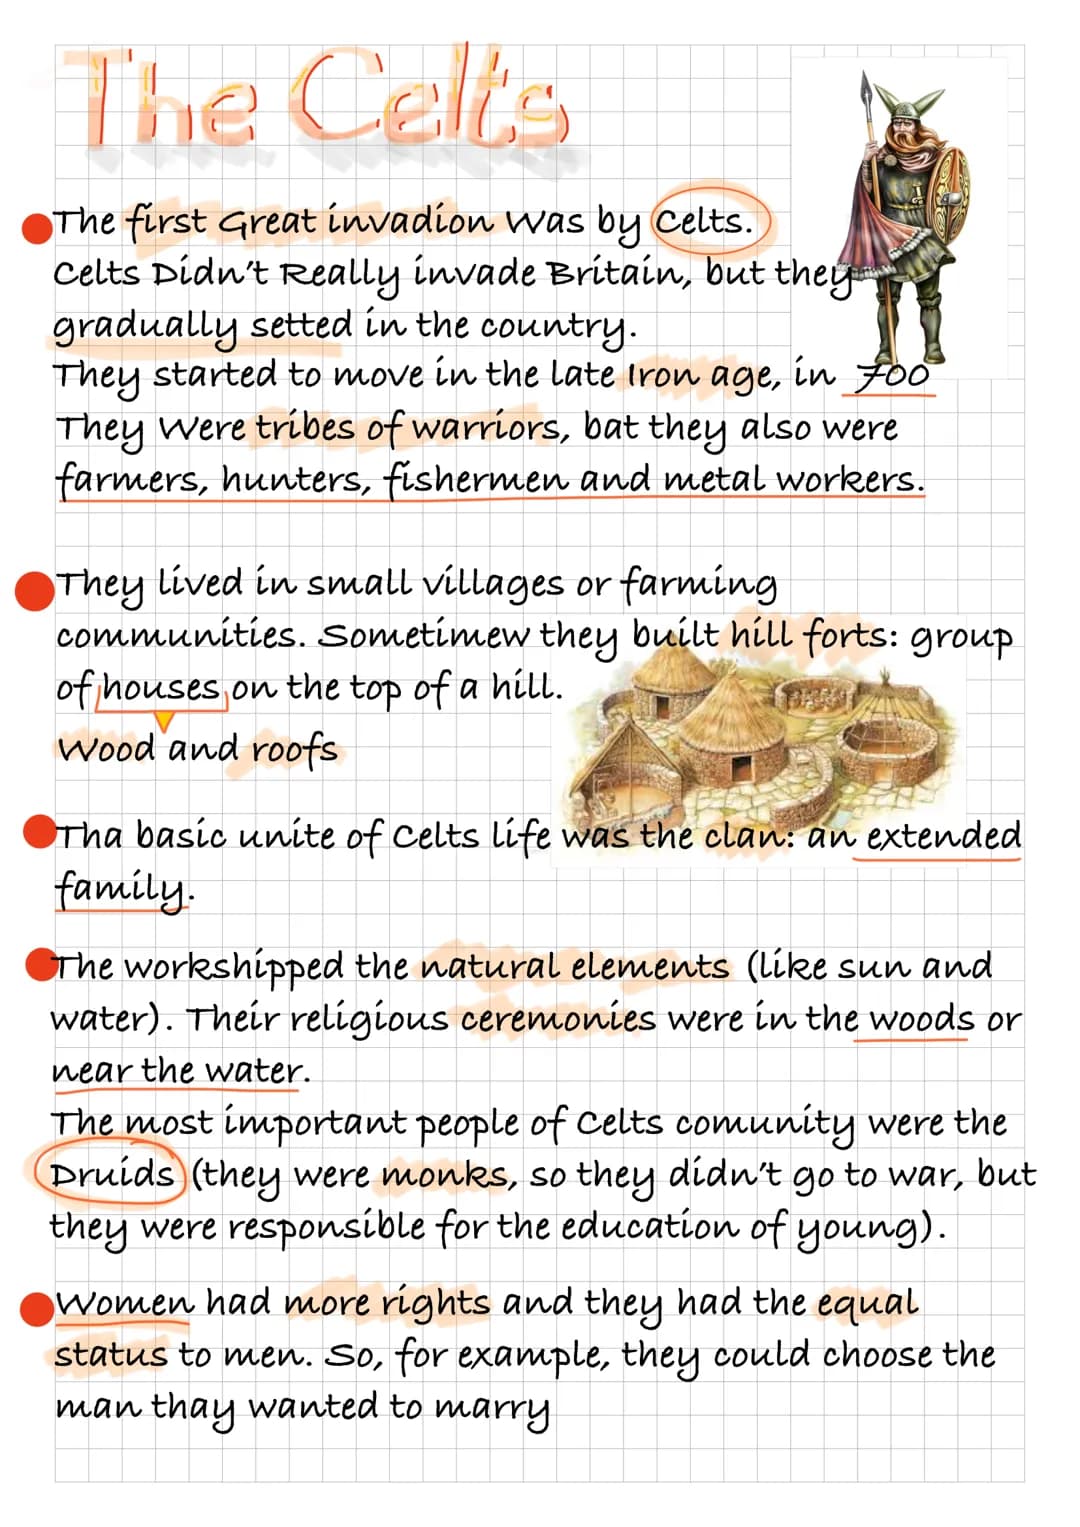 The Celts
The first Great invadion Was by Celts.
Celts Didn't Really invade Britain, but they
gradually setted in the country.
They started to move in the late Iron age, in 700
They Were tribes of warriors, bat they also were
farmers, hunters, fishermen and metal workers.
They lived in small villages or farming
communities. Sometimew they built hill forts: group
of houses on the top of a hill.
Wood and roofs
Tha basic unite of Celts life was the clan: an extended
family.
The workshipped the natural elements (like sun and
water). Their religious ceremonies were in the woods or
near the water.
The most important people of Celts comunity were the
Druids (they were monks, so they didn't go to war, but
they were responsible for the education of young).
Women had more rights and they had the equal
status to men. So, for example, they could choose the
man thay wanted to marry